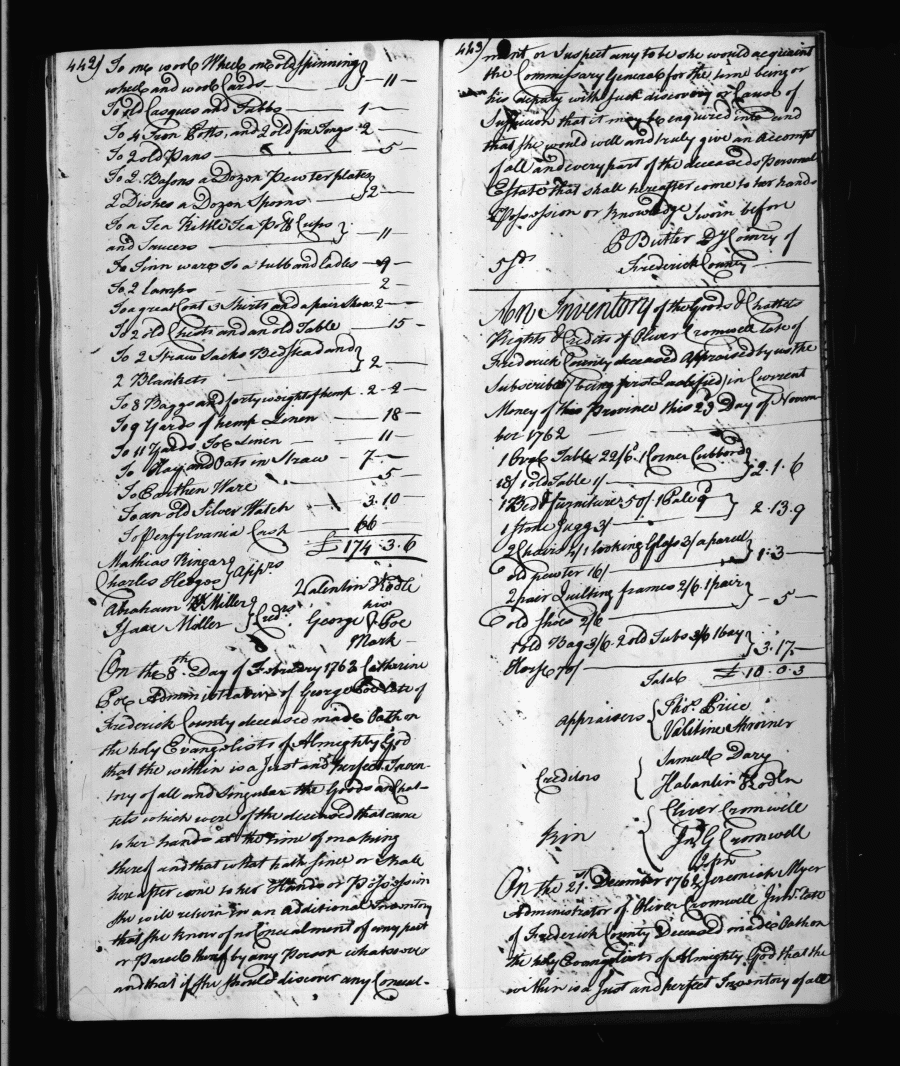 442)
To one wool Wheel one old spinning
wheel and wool Cards — 11 —
To old Casques and Tubbs — 1 —
To 4 Iron Potts, and 2 old fire Tongs - 2 —
To 2 old Pans — 5 —
To 2. Basons a Dozon Pewter plates
2 Dishes a Dozon Sporns } 2 —
To a Tea Kittle Tea Pott Cups
and Saucers } — 11 —
To Tinn ware To a tubb and ladles — 9 —
To 2 lamps — 2 —
To a great Coat 3 Shirts and a pair Shoes. 2 —
To 2 old Chests and an old Table — 15 —
To 2 Straw Sacks Bedstead and
2 Blankets } 2 —
To 8 Baggs and forty weight of hemp . 2 - 2 —
To 9 Yards of hemp Linen — 18 —
To 11 Yards Toe Linen — 11 —
To Hay and Oats in Straw — 7 —
To Earthen Ware — 5 —
To an old Silver Watch — 3. 10 —
To Pensylvania Cash 66 —
£ 174 . 3 . 6
Mathias Ringar
Charles Hedges } Apprs
Abraham Miller
Isaac Miller } Credrs
Valentin
his
George Poe
Mark
On the 8th Day of February 1763 Catharine
Poe Administratrix of George Poe late of
Frederick County deceased made Oath on
the holy Evangelists of Almighty God
that the within is a Just and perfect Inven-
tory of all and Singular the Goods and Chat-
tels which were of the deceased that came
to her hands at the time of making
thereof and that what hath since or shall
hereafter come to her Hands or Possession
she will return in an additional Inventory
that she know of no Concealment of any part
or Parcel thereof by any Person whatsoever
and that if she should discover any Conceal-
443)
ment or Suspect any to be she would acquaint
the Commissary General for the time being or
his deputy with such discovery or Cause of
Suspicion that it may be enquired into and
that she would well and truly give an Accompt
of all and every part of the deceaseds Personal
Estate that shall hereafter come to her hands
Possession or knowledge Sworn before
P Butler Dy Comry of
Frederick County
An Inventory of the Goods & Chattels
Rights & Credits of Oliver Cromwell late of
Frederick County deceased Appraised by us the
Subscribers being first Qualified in Current
Money of this Province this 23 Day of Novem
ber 1762
1 Oval Table 22/6. 1 Corner Cubbord
18/ 1 old Table 1/ } 2 . 1 . 6
1 Bed & furniture 50/ 1 Pale 9d
1 Stone Jugg 3/ } 2 . 13 . 9
2 Chairs 1 looking Glass 3/ a parcel
old pewter 16/ } 1 . 3 —
2 pair Quilting frames 2/6. 1 pair
old Shoes 2/6 } — 5 —
1 old Bag 3/6. 2 old Tubs 3/6 1 bay
Horse 70/ } 3 . 17 —
Total £ 10 . 0 . 3
Appraisers { Thos. Price
Valitine Shroiner
Creditors { Samuell Dary
Kin { Oliver Cromwell
Jno G Cromwell
On the 21st December 1762 Jeremiah Myer
Administrator of Oliver Cromwell Junr. late
of Frederick County Deceased made Oath on
the holy Evangelists of Almighty God that the
within is a Just and perfect Inventory of all